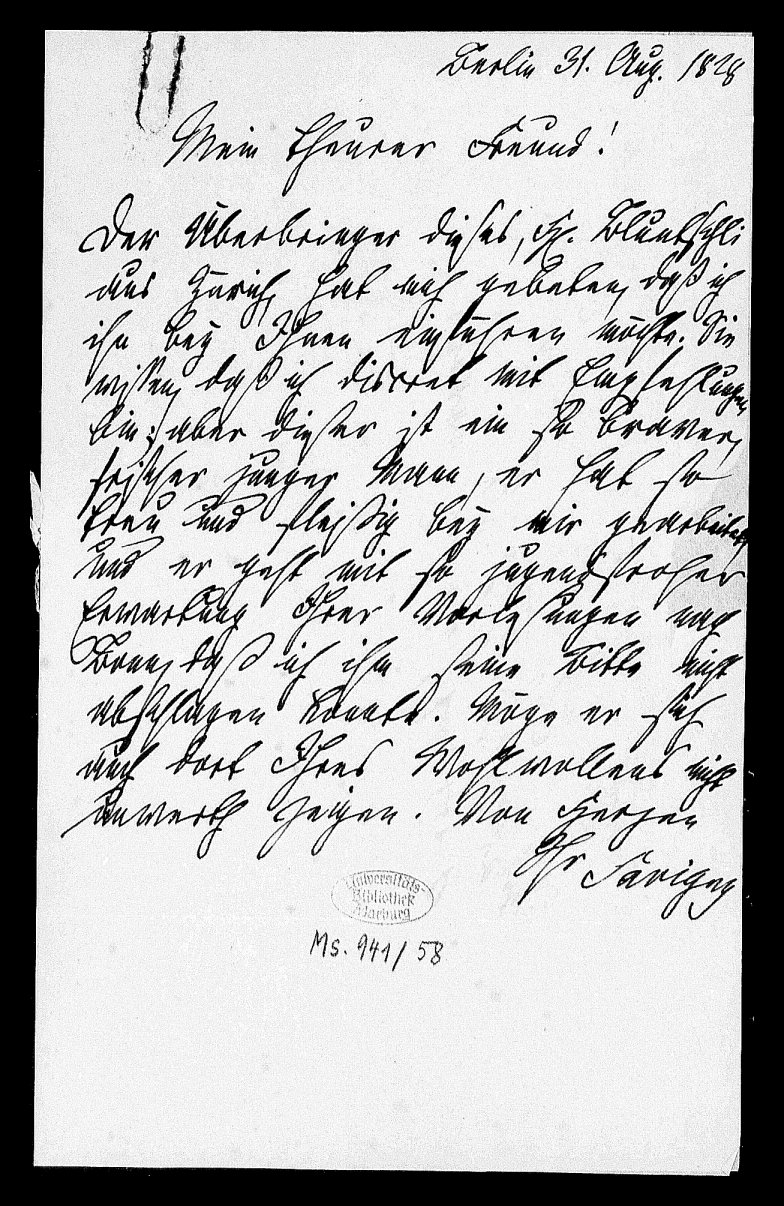 Berlin 31. Aug. 1828
Mein theurer Freund!
Der Überbringer dieses, H. Bluntschli
aus Zürich, hat mich gebeten, daß ich
ihn bey Ihnen einführen möchte. Sie
wissen, daß ich discret mit Empfehlungen
bin; aber dieser ist ein so braver,
frischer junger Mann, er hat so
treu und fleißig bey mir gearbeitet,
und er geht mit so jugendfroher
Erwartung Ihrer Vorlesungen nach
Bonn, daß ich ihm seine Bitte nicht
abschlagen konnte. Möge er sich
auch dort Ihres Wohlwollens nicht
unwerth zeigen. Von Herzen
Ihr Savigny
Universitäts-
Bibliothek
Marburg
Ms. 941/58